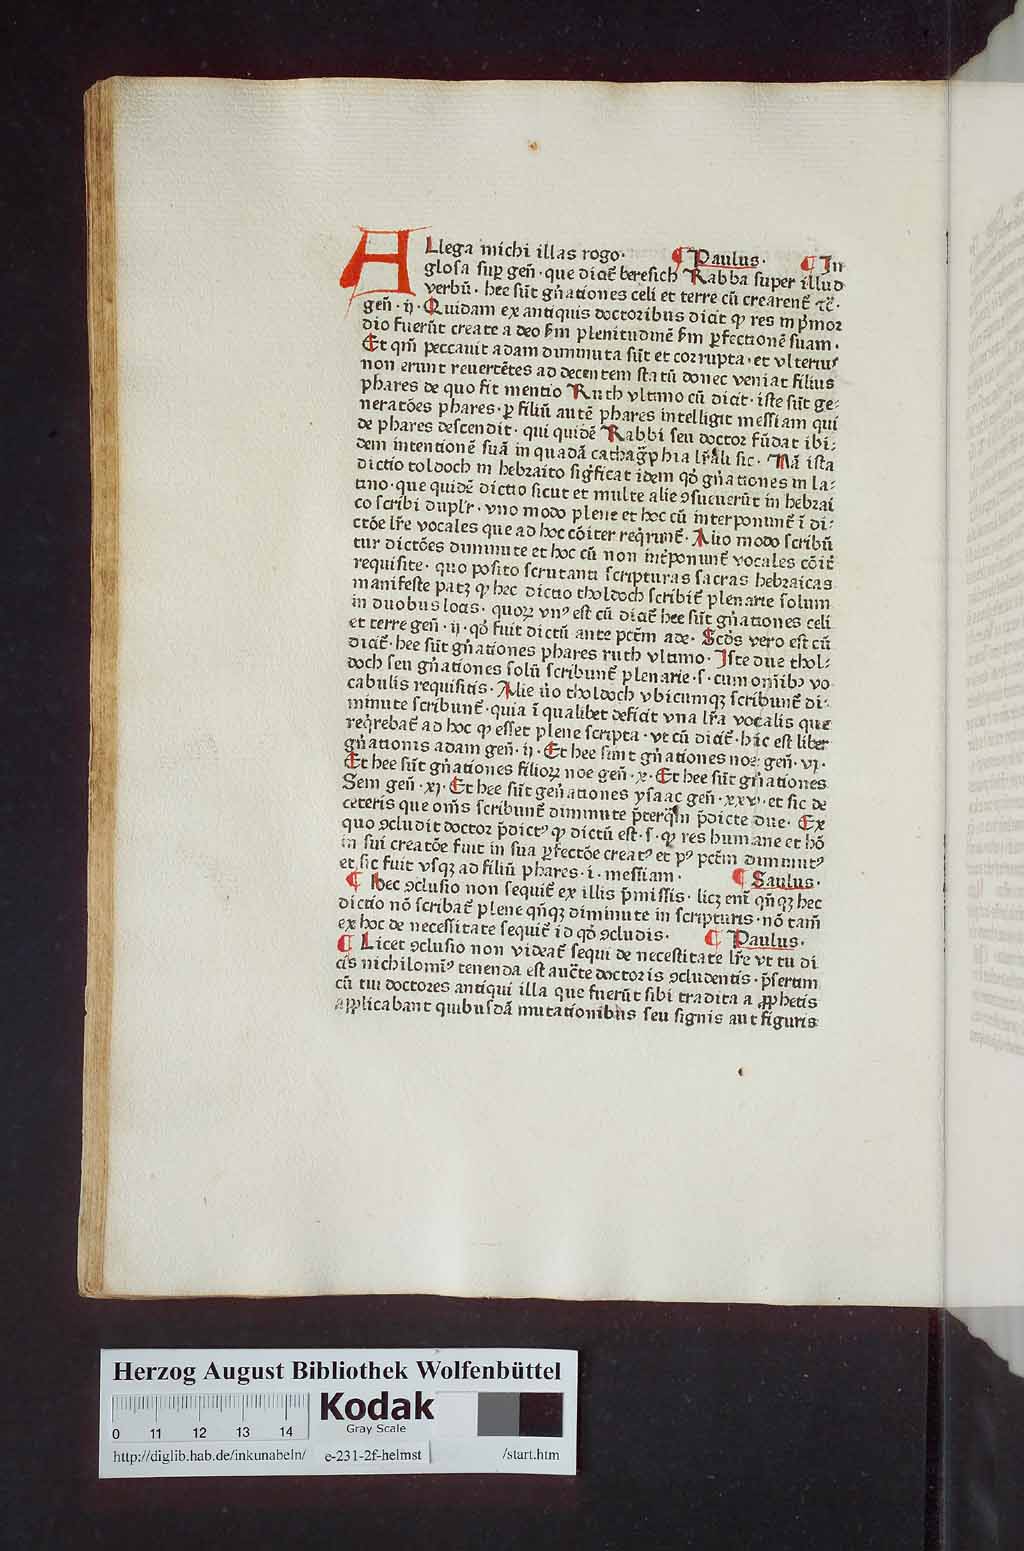 ALlega michi illas rogo· ¶ Paulus· ¶ In
glosa sup̱ geñ· que dicit̃ beresich Rabba super illud
verbũ· hee sũt gñationes celi et terre cũ crearent̃ ꝛc̃·
geñ· ij· Quidam ex antiquis doctoribus dicit ꝙ res in pͥmor
dio fuerũt create a deo sm̃ plenitudinẽ sm̃ ꝑfectionẽ suam·
Et qm̃ peccauit adam diminuta sũt et corrupta· et vlterius
non erunt reuertẽtes ad decentem statũ donec veniat filius
phares de quo fit mentio Ruth vltimo cũ dicit· iste sũt ge⸗
neratões phares· ꝑ filiũ autẽ phares intelligit messiam qui
de phares descendit· qui quidẽ Rabbi seu doctor fũdat ibi⸗
dem intentionẽ suã in quadã cathagͣphia lr̃ali sic· Nã ista
dictio toldoch in hebraico sigͥficat idem qd̾ gñationes in la⸗
tino· que quidẽ dictio sicut et multe alie ꝯsueuerũt in hebrai
co scribi duplr̃· vno modo plene et hoc cũ interponunt̃ ĩ di⸗
ctõe lr̃e vocales que ad hoc cõiter reqͥrunt̃· Alio modo scribũ
tur dictões diminute et hoc cũ non int̾ponunt̃ vocales cõit̾
requisite· quo posito scrutanti scripturas sacras hebraicas
manifeste patꝫ ꝙ hec dictio tholdoch scribit̃ plenarie solum
in duobus locis· quoꝝ vnꝰ est cũ dicit̃ hee sũt gñationes celi
et terre geñ· ij· qd̾ fuit dictũ ante pctm̃ ade· Scd̾s vero est cũ
dicit̃· hee sũt gñationes phares ruth vltimo· Iste due thol⸗
doch seu gñationes solũ scribunt̃ plenarie· s· cum om̃ibꝰ vo
cabulis requisitis· Alie ṽo tholdoch vbicumqꝫ scribunt̃ di⸗
minute scribunt̃· quia ĩ qualibet deficit vna lr̃a vocalis que
reqͥrebat̃ ad hoc ꝙ esset plene scripta· vt cũ dicit̃· hic est liber
gñationis adam geñ· ij· Et hee sunt gñationes noe· geñ· vj·
Et hee sũt gñationes filioꝝ noe geñ· x· Et hee sũt gñationes
Sem geñ· xj· Et hee sũt geñationes ysaac geñ· xxv· et sic de
ceteris que om̃s scribunt̃ diminute p̃terqͣm p̃dicte due· Ex
quo ꝯcludit doctor p̃dictꝰ ꝙ dictũ est· s· ꝙ res humane et hõ
in sui creatõe fuit in sua ꝑfectõe creatꝰ et pꝰ pctm̃ diminutꝰ
et sic fuit vsqꝫ ad filiũ phares· i· messiam· ¶ Saulus·
¶ Hec ꝯclusio non sequit̃ ex illis p̃missis· licꝫ eni̾ qñqꝫ hec
dictio nõ scribat̃ plene qñqꝫ diminute in scripturis· nõ tam̃
ex hoc de necessitate sequit̃ id qd̾ ꝯcludis· ¶ Paulus·
¶ Licet ꝯclusio non videat̃ sequi de necessitate lr̃e vt tu di
cis nichilomiꝰ tenenda est auct̃e doctoris ꝯcludentis· p̃sertim
cũ tui doctores antiqui illa que fuerũt sibi tradita a ꝓphetis
applicabant quibusdã mutationibus seu signis aut figuris
Herzog August Bibliothek Wolfenbüttel
0 11 12 13 14
Kodak
Gray Scale
http://diglib.hab.de/inkunabeln/ e-231-2f-helmst /start.htm